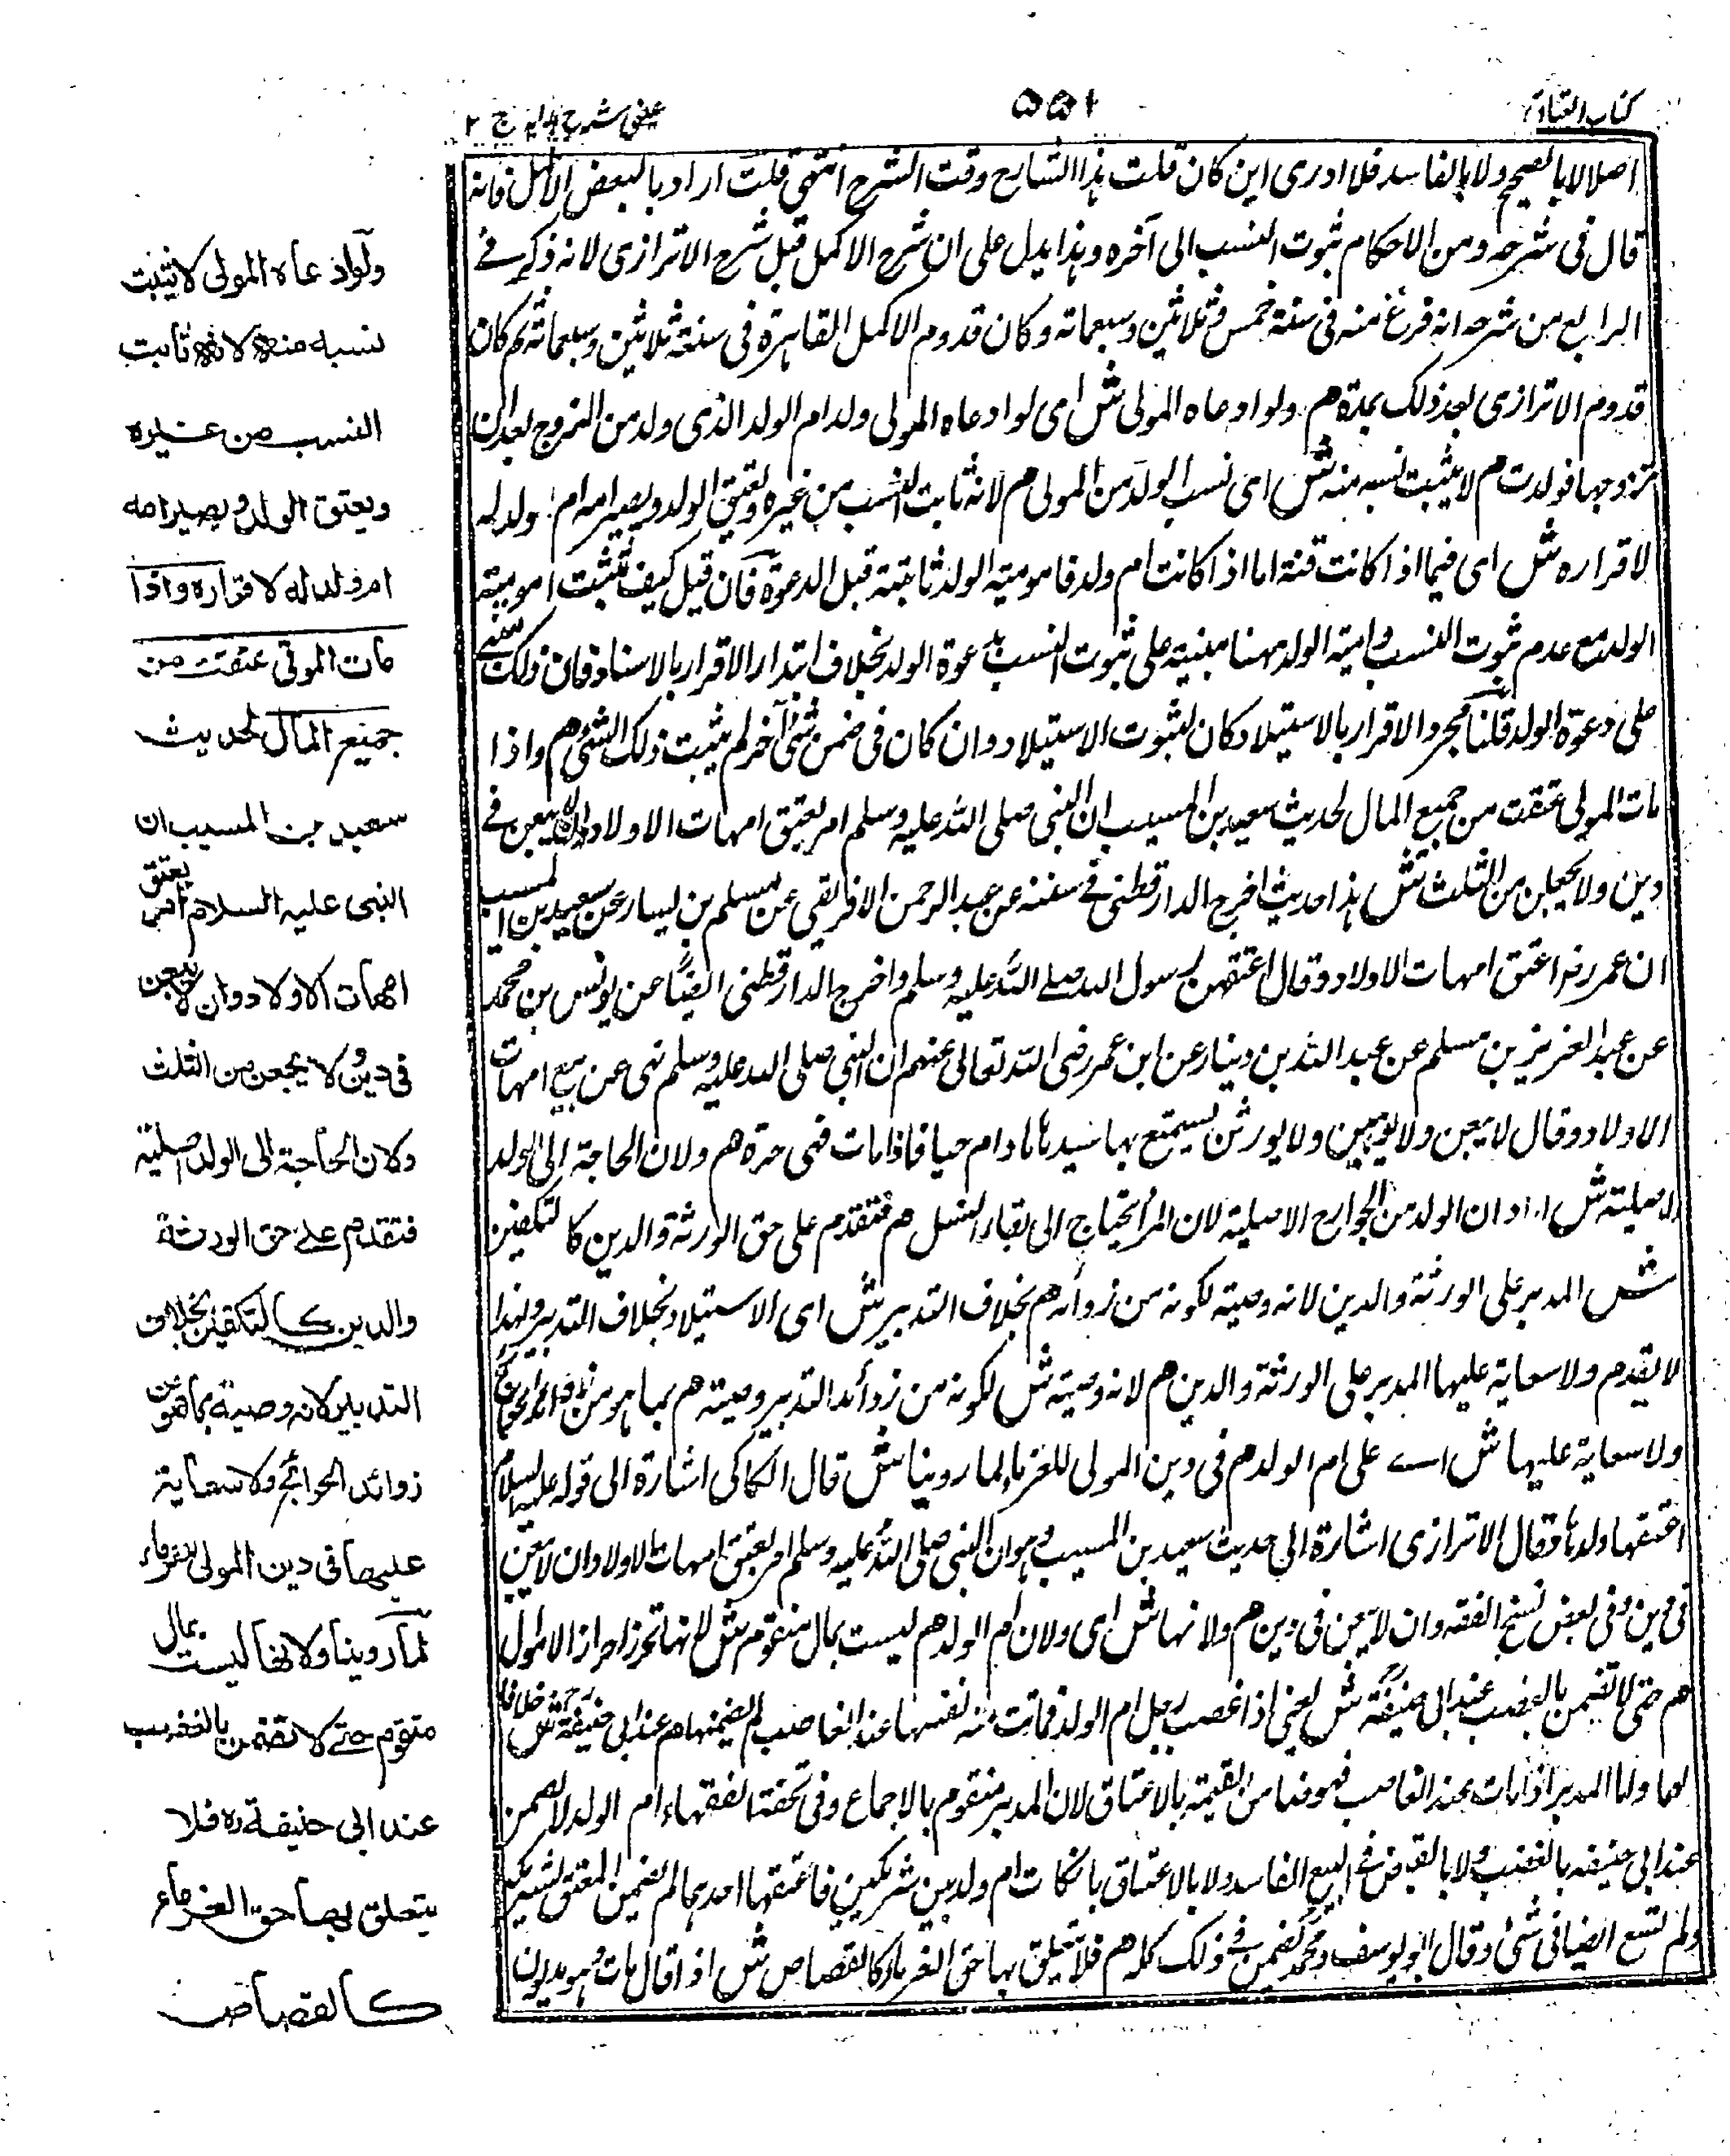 كتاب العتاق
٥٥١
عينى شرح هدايه ج ٢
اصلا لا بالصحيح ولا بالفاسد فلا ادرى اين كان قلت هذا الشارح وقت الشرح انتهى قلت اراد بالبعض الاكمل فانه
قال فى شرحه ومن الاحكام ثبوت النسب الى آخره وهذا يدل على ان شرح الاكمل قبل شرح الاترازى لانه ذكر فے
الرابع من شرحه انه فرغ منه فى سنة خمس وثلاثين وسبعمائة وكان قدوم الاكمل القاهرة فى سنة ثلاثين وسبعمائة ثم كان
قدوم الاترازى بعد ذلك بمدة هم ولو ادعاه المولى ش اى لو ادعاه المولى ولد ام الولد الذى ولد من الزوج بعد ان
تزوجها فولدت هم لا يثبت نسبه منه ش اى نسب الولد من المولى هم لانه ثابت النسب من غيره ويعتق الولد ويصير امه ام ولد له
لاقراره ش اى فيما اذا كانت قنة اما اذا كانت ام ولد فامومية الولد ثابتة قبل الدعوة فان قيل كيف تثبت امومية
الولد مع عدم ثبوت النسب وامية الولد ههنا مبنية على ثبوت النسب بدعوة الولد بخلاف ابتداء الاقرار بالاسناد فان ذلك يبنے
على دعوة الولد قلنا مجرد الاقرار بالاستيلاد كان لثبوت الاستيلاد وان كان فى ضمن شئ آخر لم يثبت ذلك الشئ هم واذا
مات المولى عتقت من جميع المال لحديث سعيد بن المسيب ان النبى صلى الله عليه وسلم امر بعتق امهات الاولاد وان لا يبعن فے
دين ولا يجعلن من الثلث ش هذا حديث اخرج الدارقطنى فے سننه عن عبد الرحمن الافريقى عن مسلم بن يسار عن سعيد بن المسيب
ان عمر رضه اعتق امهات الاولاد وقال اعتقهن رسول الله صلے الله عليه وسلم واخرج الدارقطنى ايضًا عن يونس بن محمد
عن عبد العزيز بن مسلم عن عبد الله بن دينار عن ابن عمر رضى الله تعالى عنهم ان النبى صلى الله عليه وسلم نهى عن بيع امهات
الاولاد وقال لا يبعن ولا يوهبن ولا يورثن يستمتع بها سيدها ما دام حيا فاذا مات فهى حرة هم ولان الحاجة الى الولد
اصلية ش اراد ان الولد من الجوارح الاصلية لان المرأ يحتاج الى بقاء النسل هم فتقدم على حق الورثة والدين كالتكفين
ش المدبر على الورثة والدين لانه وصية لكونه من زوائد هم بخلاف التدبير ش اى الاستيلاد بخلاف التدبير ولهذا
لا يقدم ولا سعاية عليها المدبر على الورثة والدين هم لانه وصية ش لكونه من زوائد التدبير وصية هم بما هو من زوائد الحوائج
ولا سعاية عليها ش اے على ام الولد هم فى دين المولى للغرماء لما روينا ش قال الكاكى اشارة الى قوله عليه السلام
اعتقها ولدها وقال الاترازى اشارة الى حديث سعيد بن المسيب وهو ان النبى صلى الله عليه وسلم امر بعتق امهات الاولاد وان لا يبعن
فى دين وفى بعض نسخ الفقه وان لا يبعن فى دين هم ولانها ش اى ولان ام الولد هم ليست بمال متقوم ش لانها تحرز احراز الاموال
هم حتى لا تضمن بالغصب عند ابى حنيفةؒ ش يعنى اذا غصب رجل ام الولد فماتت منه نفسها عند الغاصب لم يضمنها هم عند ابى حنيفةؒ ش خلافا
لهما واما المدبر اذا مات عند الغاصب فهو ضامن القيمة بالاعتاق لان المدبر متقوم بالاجماع وفى تحفة الفقهاء ام الولد لا تضمن
عند ابى حنيفه بالغصب ولا بالقبض فے البيع الفاسد ولا بالاعتاق بان كانت ام ولد بين شريكين فاعتقها احدهما لم يضمن المعتق لشريكه
ولم تسع ايضا فى شئ وقال ابو يوسف ومحمد يضمن فے ذلك كله هم فلا يتعلق بها حق الغرماء كالقصاص ش اذا قال مات وهو مديون
ولو ادعاه المولى لا يثبت
نسبه منه لانه ثابت
النسب من غيره
ويعتق الولد ويصير امه
ام ولد له لاقراره واذا
مات المولى عتقت من
جميع المال لحديث
سعيد بن المسيب ان
النبى عليه السلام امر بعتق
امهات الاولاد وان لا يبعن
فى دين ولا يجعلن من الثلث
ولان الحاجة الى الولد اصلية
فتقدم على حق الورثة
والدين كالتكفين بخلاف
التدبير لانه وصية بما هو من
زوائد الحوائج ولا سعاية
عليها فى دين المولى للغرماء
لما روينا ولانها ليست بمال
متقوم حتے لا تضمن بالغصب
عند ابى حنيفة ره فلا
يتعلق بها حق الغرماء
كالقصاص